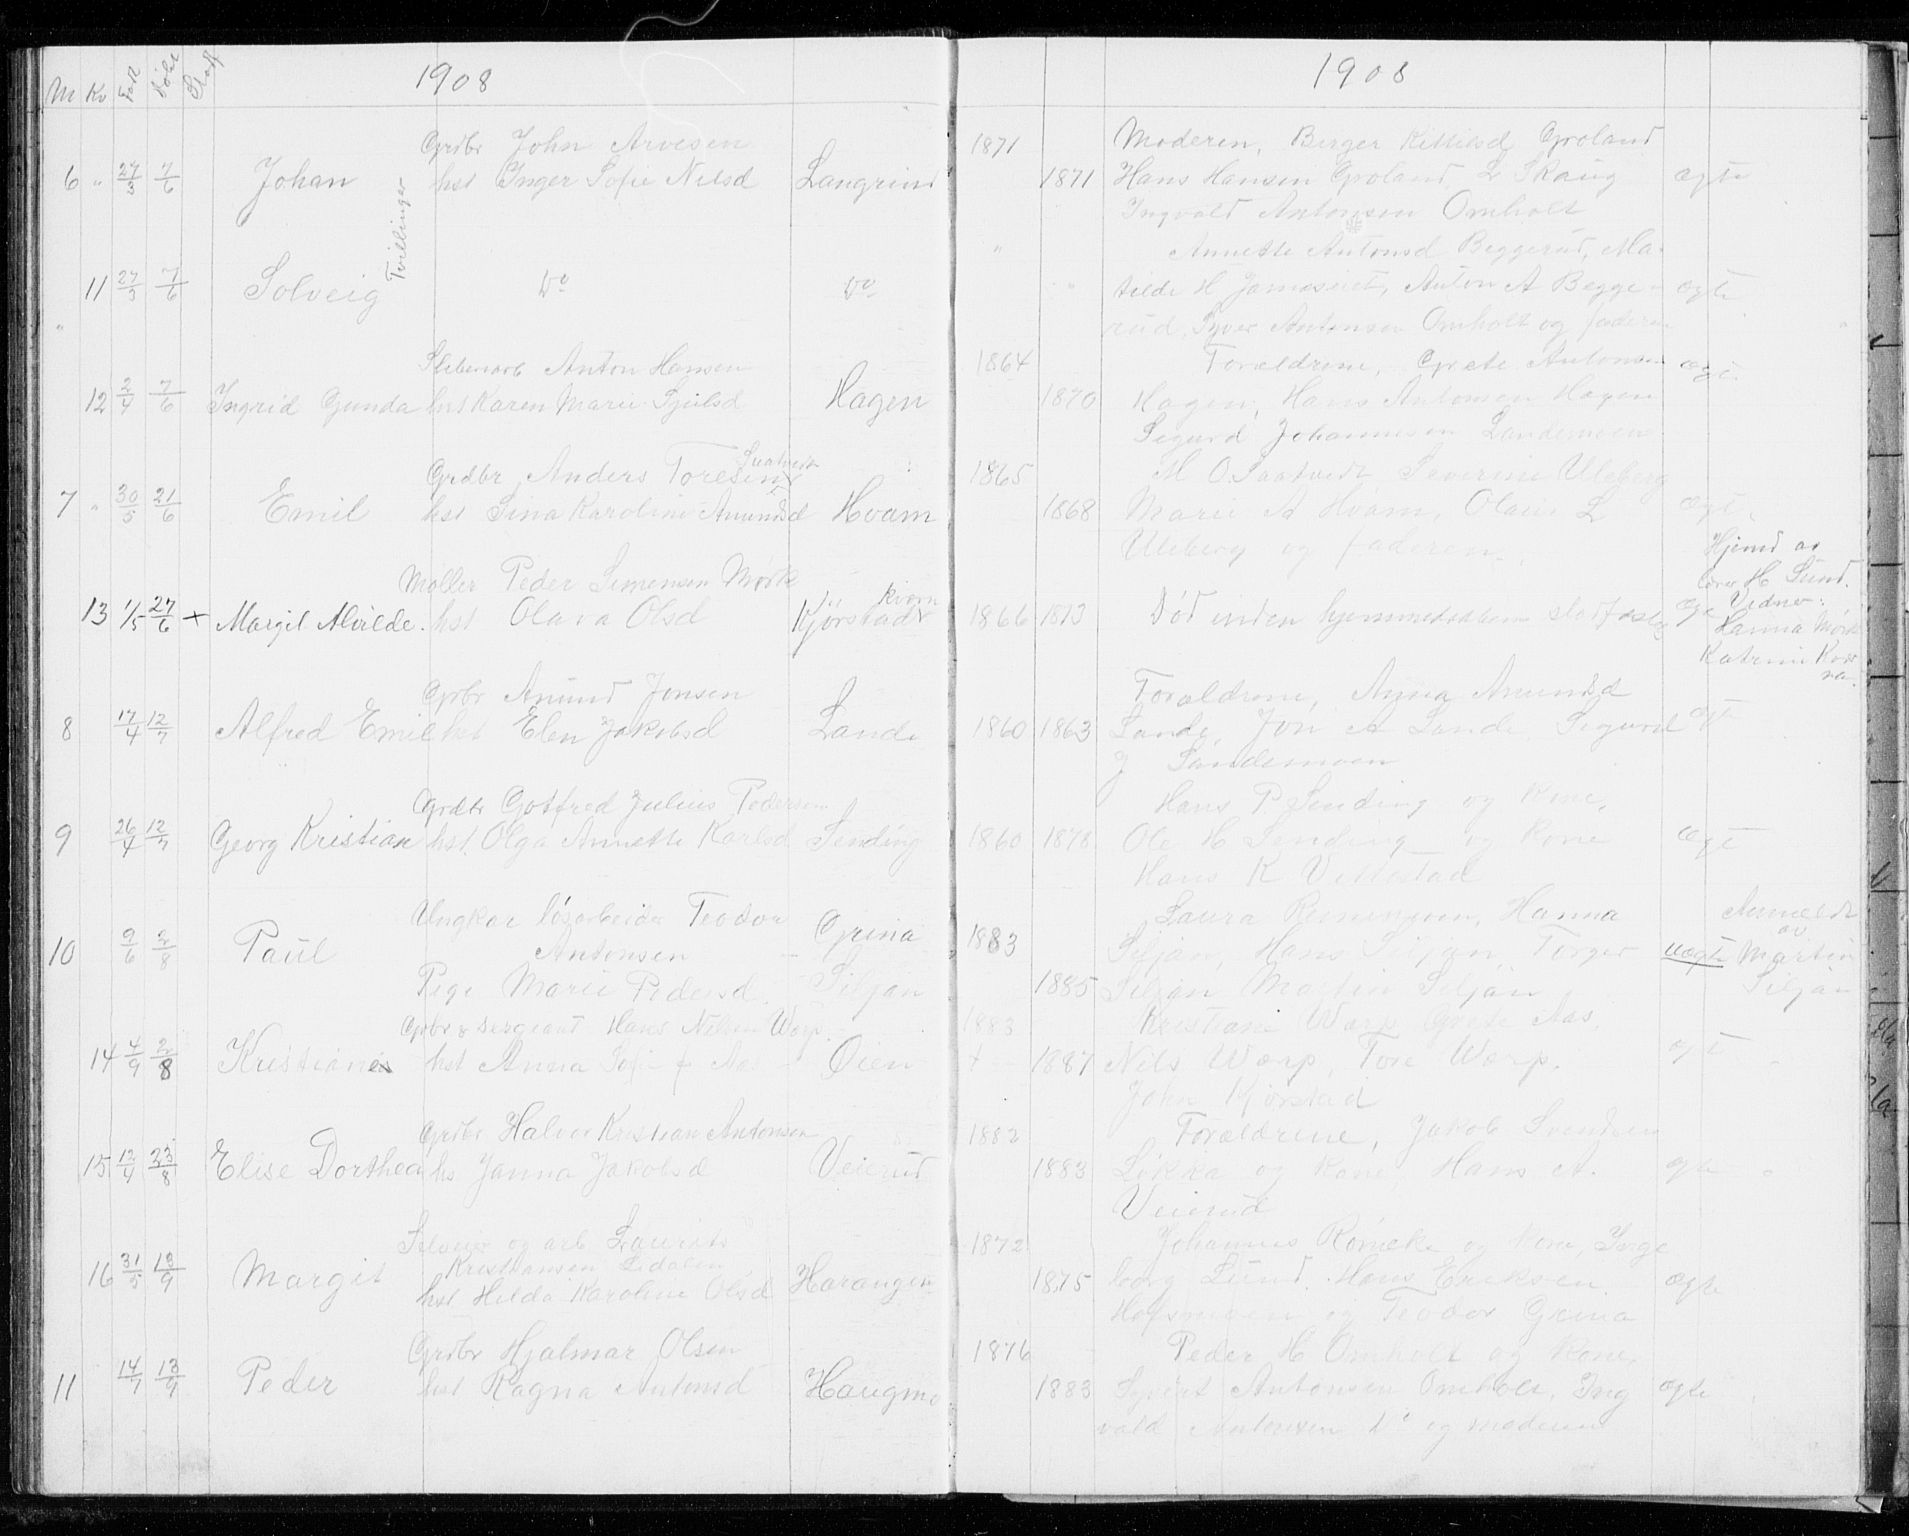 1908
M Kv Født Døbt Stadf
Grdbr John Arvesen
6 " 27/3 7/6 Johan hst Inger Sofie Nilsd Langrind
Tvillinger
11 27/3 7/6 Solveig Do Do
"
Sliberiarb Anton Hansen
12 2/4 7/6 Ingrid Gunda hst Karen Marie Hagen
Grdbr Anders Toresen Saatvedt
7 " 30/5 21/6 Emil hst Sina Karoline Amundsd Hvam
Møller Peder Simensen Mørk
13 1/5 27/6 + Margit Alvilde. hst Olava Olsd Kjørstad kvern
Grbr Amund Jonsen
8 17/4 12/7 Alfred Emil hst Elen Jakobsd Lande
Grdbr Gotfred Julius Pedersen
9 26/4 12/7 Georg Kristian hst Olga Annette Karlsd Sending
Ungkar løsarbeider Teodor
10 9/6 2/8 Paul Antonsen Grina
Pige Marie Pedersd Siljan
Grbr & sergeant Hans Nilsen Warp
14 4/9 2/8 Kristiane hst Anna Sofie Aas Øien
Grdbr Halvor Kristian Antonsen
15 12/4 23/8 Elise Dorthea hs Janna Jakobsd Veierud
Selveier og arb Laurits
Kristiansen Lidalen
16 31/5 13/9 Margit hst Hilda Karoline Olsd Harangen
Grdbr Hjalmar Olsen
11 14/7 13/9 Peder hst Ragna Antonsd Haugmo
1908
1871 Moderen, Berger Kittilsd Groland
1871 Hans Hansen Groland, L Skaug ægte
Ingvald Antonsen Omholt
" Annette Antonsd Beggerud, Ma-
" tilde H Jamesseiet, Anton A Begge- ægte
rud, Syver Antonsen Omholt og faderen
1864 Forældrene, Grete Antonsen ægte
1870 Hagen, Hans Antonsen Hagen
Sigurd Johannesen Landemoen
1865 M O. Saatvedt Severine Uleberg
1868 Marie A Hvam, Olaus L ægte
Uleberg og faderen.
Hjemd av
lærer H Lund.
1866 1873 Død inden hjemmedaaben stadfæstes ægte Vidner:
Hanna Mørk
Katrine Kver
na.
Forældrene, Anna Amundsd
1860 1863 Lande, Jon A Lande Sigurd ægte
J Landemoen
Hans P. Sending og kone,
1860 1878 Ole H Sending og kone ægte
Hans K Vettestad
Laura Hanna Anmeldt
1883 Siljan, Hans Siljan, Torger uægte av Martin
1885 Siljan Martin Siljan Siljan
1883 Kristiane Warp Grete Aas,
+ 1887 Nils Warp, Tore Warp. ægte
John Kjørstad
1882 Forældrene, Jakob Svendsen
1883 Løkka og kone, Hans A. ægte
Veierud
1872 Johannes og kone, Inge
1875 borg Lund, Hans Eriksen ægte
Hofsmoen og Teodor Grina
1876 Peder H Omholt og kone,
1883 Syvert Antonsen Omholt, Ing ægte
vald Antonsen Do og moderen